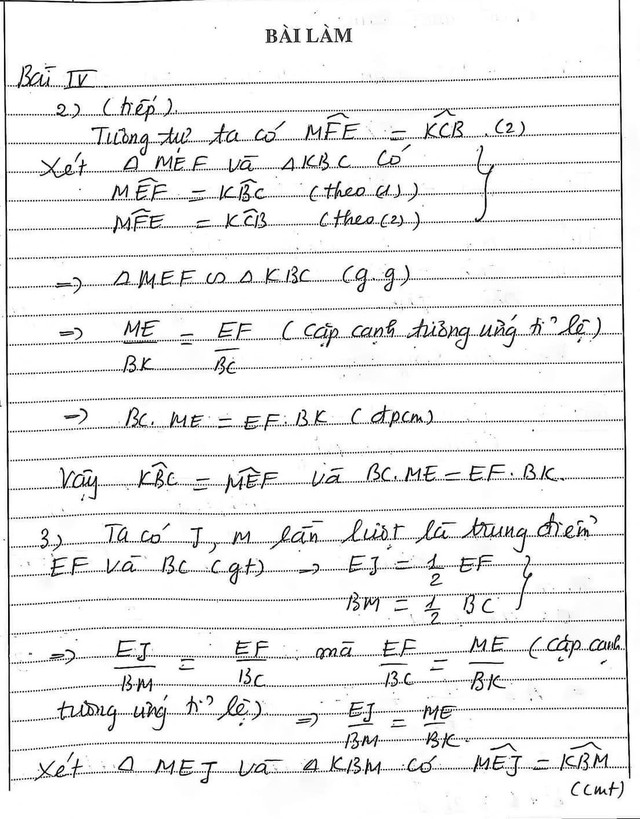 BÀI LÀM
Bài IV
2) (tiếp).
Tương tự ta có M̂FE = K̂CB . (2)
Xét Δ MEF và Δ KBC có
M̂EF = K̂BC (theo (1))
M̂FE = K̂CB (theo (2))
=> Δ MEF ∽ Δ KBC (g.g)
=> ME/BK = EF/BC (cặp cạnh tương ứng tỉ lệ)
=> BC. ME = EF. BK (đpcm)
Vậy K̂BC = M̂EF và BC. ME = EF. BK.
3) Ta có J, M lần lượt là trung điểm
EF và BC (gt) => EJ = 1/2 EF
BM = 1/2 BC
=> EJ/BM = EF/BC mà EF/BC = ME/BK (cặp cạnh
tương ứng tỉ lệ) => EJ/BM = ME/BK.
Xét Δ MEJ và Δ KBM có M̂EJ = K̂BM
(cmt)